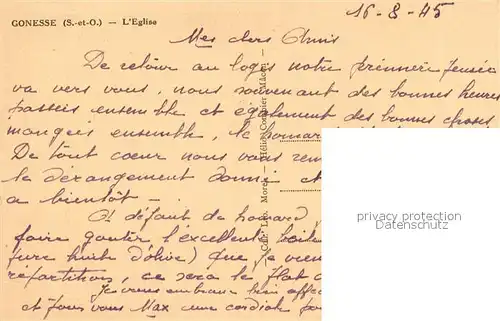 GONESSE (S.-et-O.) — L'Eglise
16-8-45
Mes chers Amis
De retour au logis notre première pensée
va vers vous, nous souvenant des bonnes heures
passées ensemble et également des bonnes choses
mangées ensemble, le homar
De tout coeur nous vous rem
le dérangement donné et
a bientôt -
A défaut de homard
faire goûter l'excellente boite
pure huile d'olive) que je viens
répartition, ce sera le plat
Je vous embrasse bien affec
et pour vous Max une cordiale
privacy protection
Datenschutz